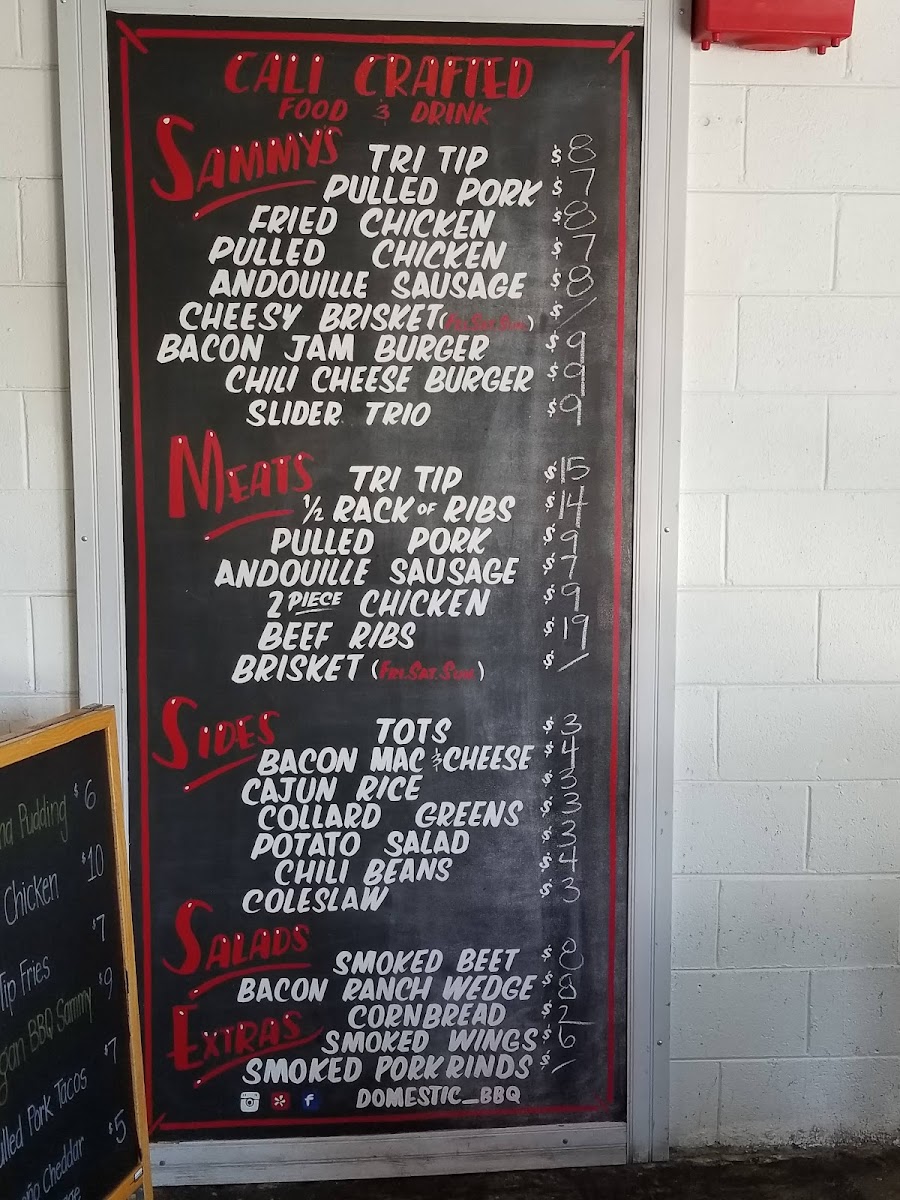 CALI CRAFTED
FOOD & DRINK
SAMMY'S
TRI TIP $8
PULLED PORK $7
FRIED CHICKEN $8
PULLED CHICKEN $7
ANDOUILLE SAUSAGE $8
CHEESY BRISKET (FRI.SAT.SUN.) $/
BACON JAM BURGER $9
CHILI CHEESE BURGER $9
SLIDER TRIO $9
MEATS
TRI TIP $15
1/2 RACK OF RIBS $14
PULLED PORK $9
ANDOUILLE SAUSAGE $7
2 PIECE CHICKEN $9
BEEF RIBS $19
BRISKET (FRI.SAT.SUN.) $/
SIDES
TOTS $3
BACON MAC & CHEESE $4
CAJUN RICE $3
COLLARD GREENS $3
POTATO SALAD $3
CHILI BEANS $4
COLESLAW $3
SALADS
SMOKED BEET $8
BACON RANCH WEDGE $8
EXTRAS
CORNBREAD $2
SMOKED WINGS $6
SMOKED PORK RINDS $/
DOMESTIC_BBQ
Pudding $6
Chicken $10
Tip Fries $7
BBQ Sammy $9
Pork Tacos $7
Cheddar $5